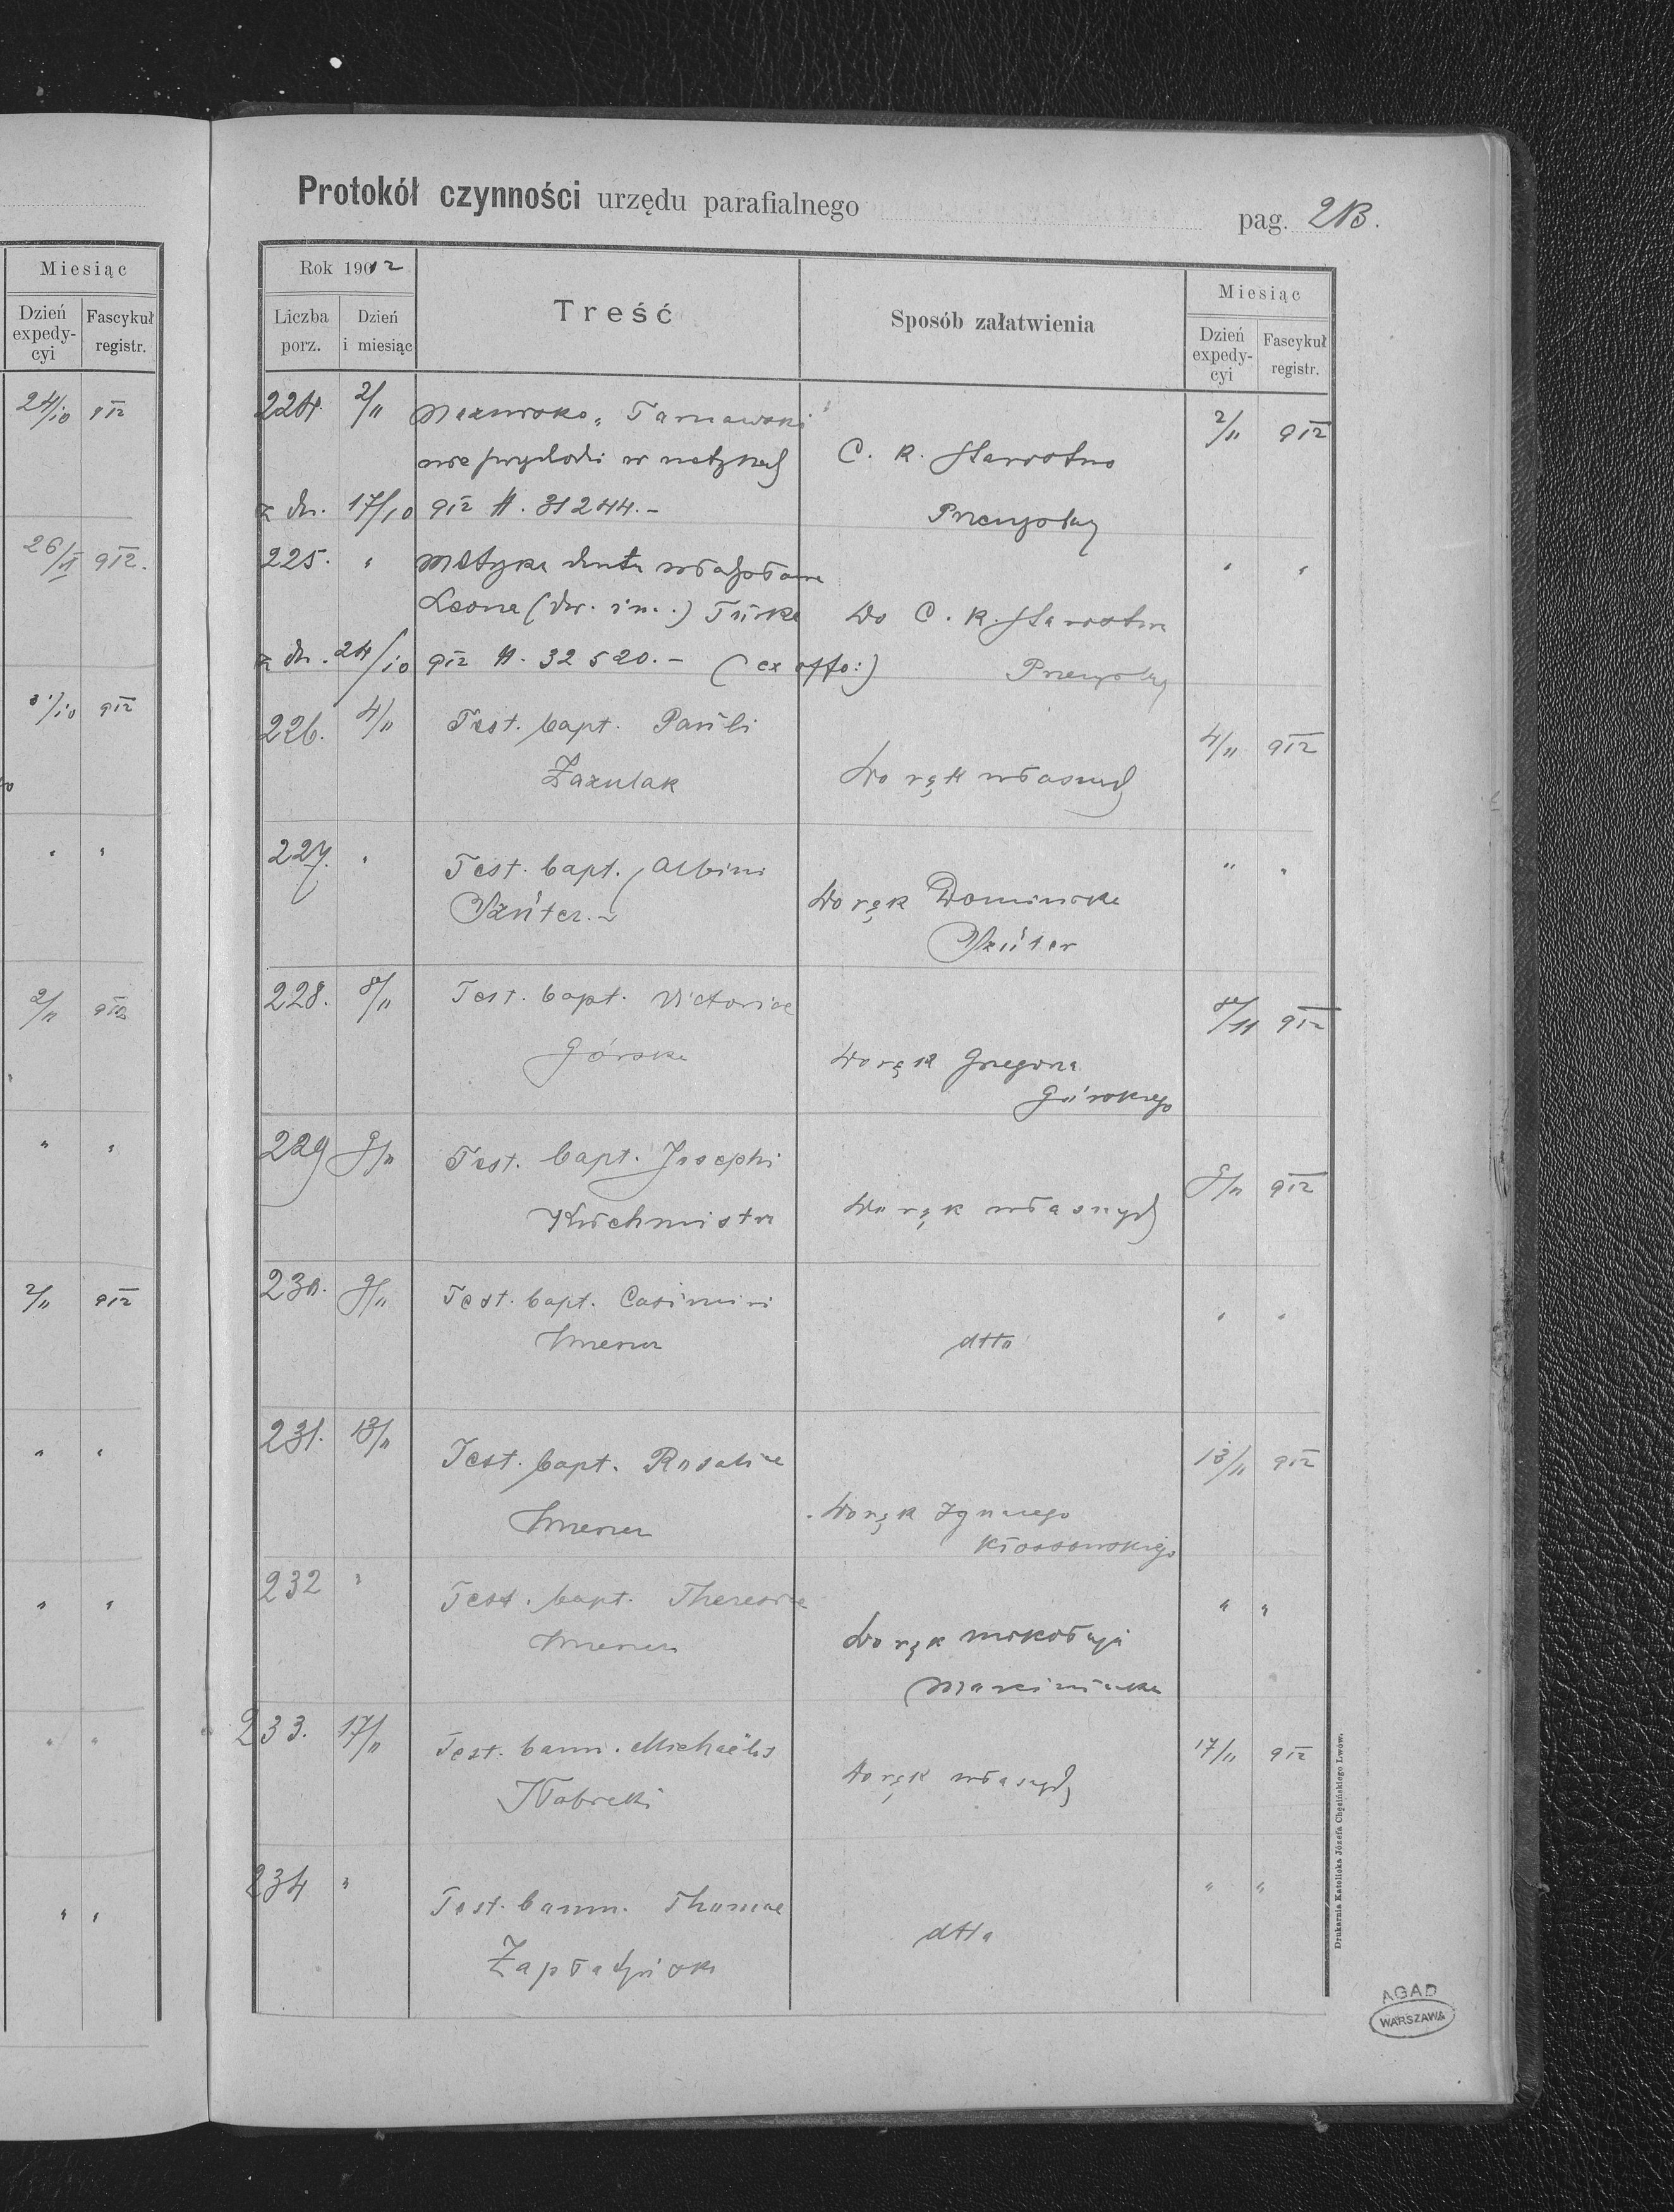 Miesiąc
Dzień expedycyi
Fascykuł registr.
24/10 912
26/X 912.
31/10 912
" "
2/11 912
" "
2/11 912
" "
" "
" "
" "
Protokół czynności urzędu parafialnego
pag. 213.
Rok 1912
Liczba porz.
Dzień i miesiąc
Treść
Sposób załatwienia
Miesiąc
Dzień expedycyi
Fascykuł registr.
224. 2/11 Tarnawski
C. K. Starostwo 2/11 912
z dn. 17/10 912 31244.-
Przemyślany
225. " Metryka
" "
Leona Türke Do C. K. Starostwa
z dn. 24/10 912 32520.- (ex offo:)
Przemyślany
226. 4/11 Test. bapt. Pauli
4/11 912
Zazulak Do rąk własnych
227. " Test. bapt. Albini
" "
Do rąk Dominika
228. 8/11 Test. bapt. Victoriae
8/11 912
Górska Do rąk Grzegorza
Górskiego
229 9/11 Test. bapt. Josephi
9/11 912
Kuchmistrz Do rąk własnych
230. 9/11 Test. bapt. Casimiri
" "
dtto
231. 13/11 Test. bapt. Rosaliae
13/11 912
Do rąk Ignacego
Kłossowskiego
232 " Test. bapt. Theresiae
" "
Do rąk Mikołaja
233. 17/11 Test. bann. Michaëlis
17/11 912
Do rąk własnych
234 " Test. bann. Thomae
" "
dtto
Drukarnia Katolicka Józefa Chęcińskiego Lwów.
AGAD
WARSZAWA